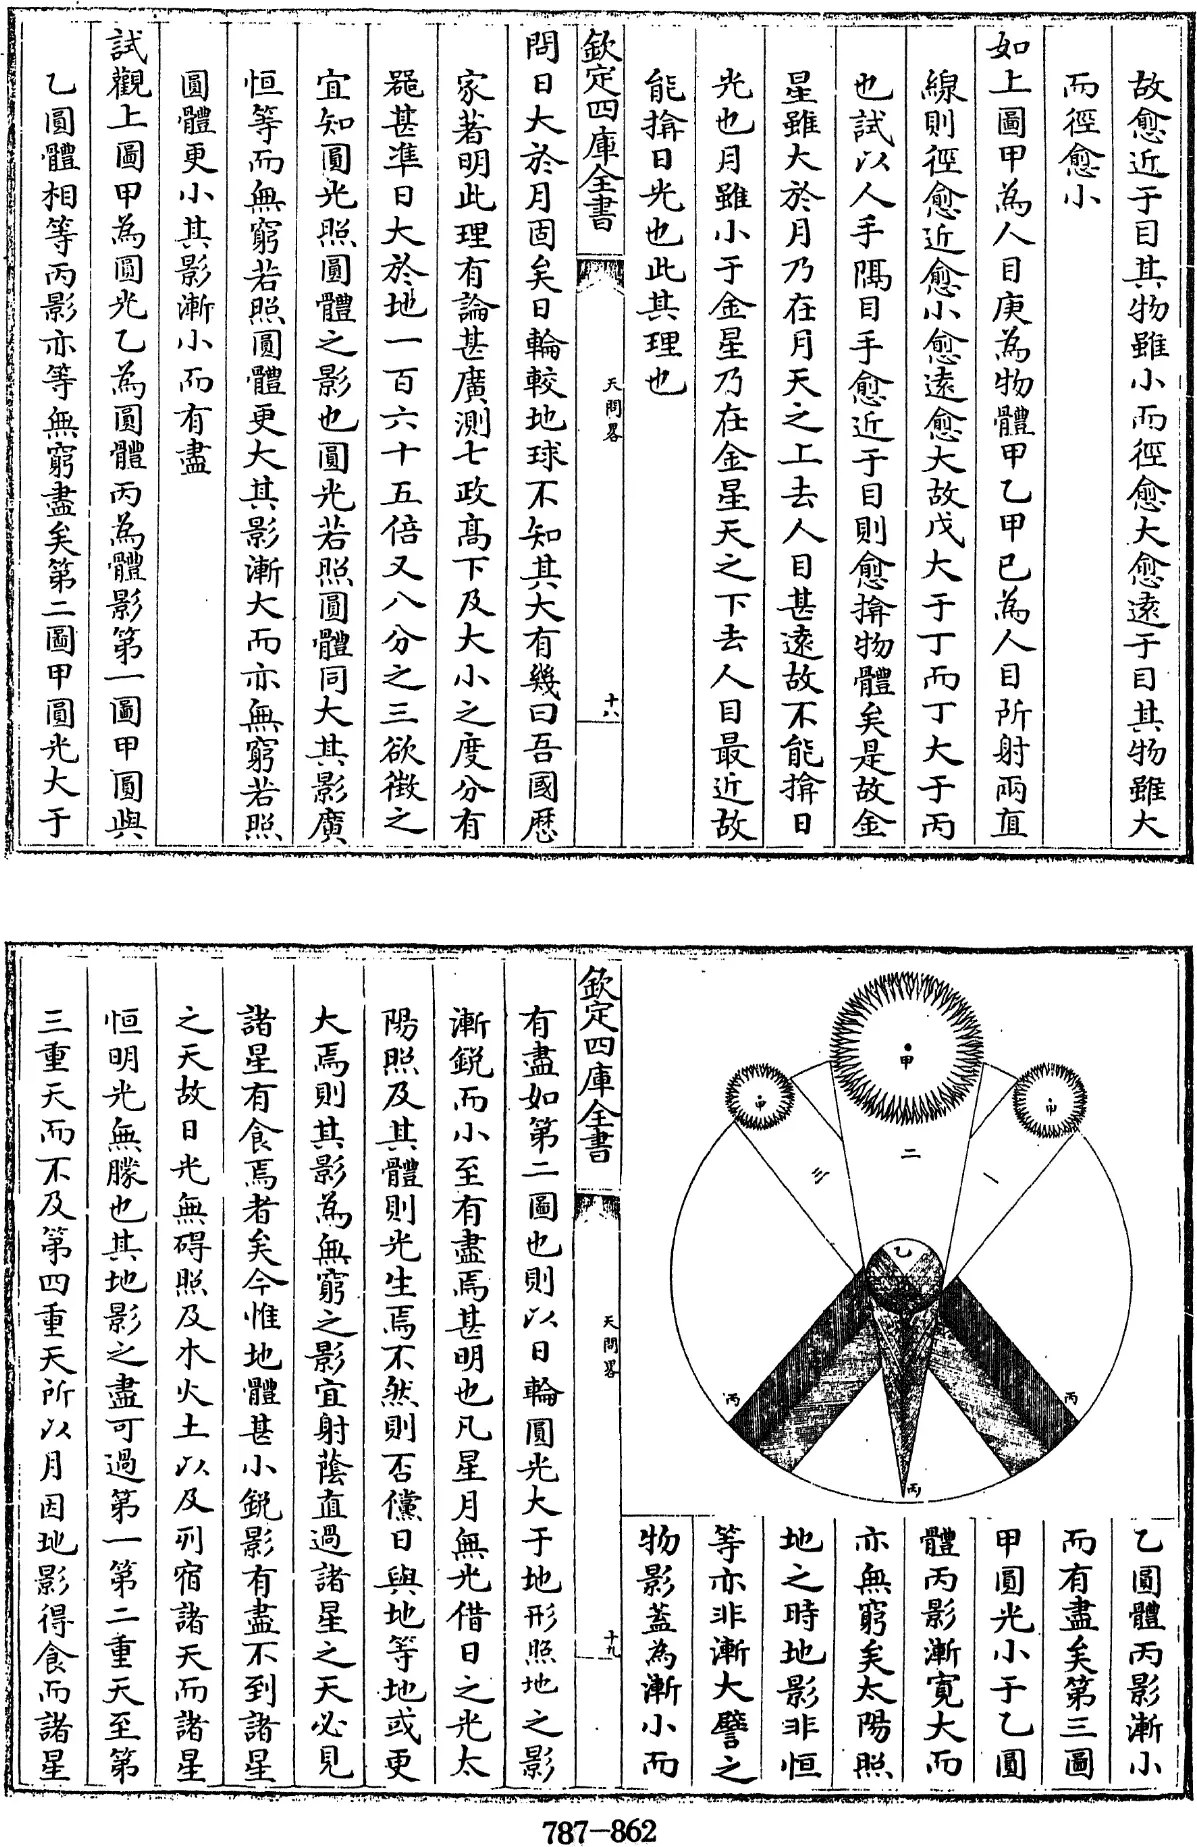 故愈近于目其物雖小而徑愈大愈遠于目其物雖大
而徑愈小
如上圖甲為人目庚為物體甲乙甲已為人目所射兩直
線則徑愈近愈小愈遠愈大故戊大于丁而丁大于丙
也試以人手隔目手愈近于目則愈揜物體矣是故金
星雖大於月乃在月天之上去人目甚遠故不能揜日
光也月雖小于金星乃在金星天之下去人目最近故
能揜日光也此其理也
欽定四庫全書
天問畧
十八
問日大於月固矣日輪較地球不知其大有幾曰吾國厯
家著明此理有論甚廣測七政髙下及大小之度分有
器甚準日大於地一百六十五倍又八分之三欲徴之
宜知圓光照圓體之影也圓光若照圓體同大其影廣
恒等而無窮若照圓體更大其影漸大而亦無窮若照
圓體更小其影漸小而有盡
試觀上圖甲為圓光乙為圓體丙為體影第一圖甲圓與
乙圓體相等丙影亦等無窮盡矣第二圖甲圓光大于
甲
甲
甲
三
二
一
乙
丙
丙
丙
乙圓體丙影漸小
而有盡矣第三圖
甲圓光小于乙圓
體丙影漸寛大而
亦無窮矣太陽照
地之時地影非恒
等亦非漸大譬之
物影蓋為漸小而
欽定四庫全書
天問畧
十九
有盡如第二圖也則以日輪圓光大于地形照地之影
漸鋭而小至有盡焉甚明也凡星月無光借日之光太
陽照及其體則光生焉不然則否儻日與地等地或更
大焉則其影為無窮之影宜射蔭直過諸星之天必見
諸星有食焉者矣今惟地體甚小鋭影有盡不到諸星
之天故日光無碍照及木火土以及列宿諸天而諸星
恒明光無朦也其地影之盡可過第一第二重天至第
三重天而不及第四重天所以月因地影得食而諸星
787-862